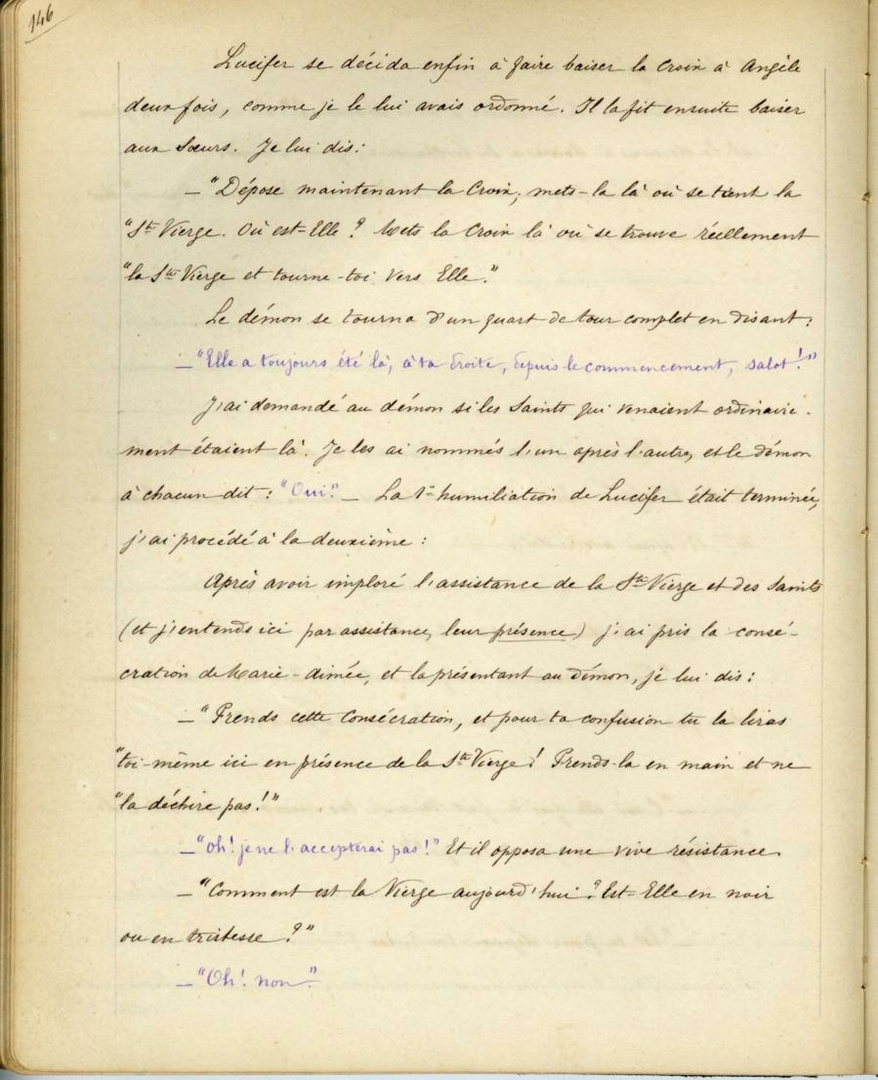 146
Lucifer se décida enfin à faire baiser la Croix à Angèle
deux fois, comme je le lui avais ordonné. Il la fit ensuite baiser
aux Sœurs. Je lui dis:
— "Dépose maintenant la Croix; mets-la là où se tient la
"Ste Vierge. Où est-Elle ? Mets la Croix là où se trouve réellement
"la Ste Vierge et tourne-toi vers Elle."
Le démon se tourna d'un quart de tour complet en disant:
— "Elle a toujours été là, à ta droite, depuis le commencement, salot!"
J'ai demandé au démon si les Saints qui venaient ordinaire-
ment étaient là. Je les ai nommés l'un après l'autre, et le démon
à chacun dit: "Oui". — La 1e humiliation de Lucifer était terminée,
j'ai procédé à la deuxième:
Après avoir imploré l'assistance de la Ste Vierge et des Saints
(et j'entends ici par assistance, leur présence) j'ai pris la consé-
cration de Marie-Aimée, et la présentant au Démon, je lui dis:
— "Prends cette Consécration, et pour ta confusion tu la liras
"toi-même ici en présence de la Ste Vierge! Prends-la en main et ne
"la déchire pas!"
— "Oh! je ne l'accepterai pas!" Et il opposa une vive résistance.
— "Comment est la Vierge aujourd'hui? Est-Elle en noir
ou en tristesse ?"
— "Oh! non".